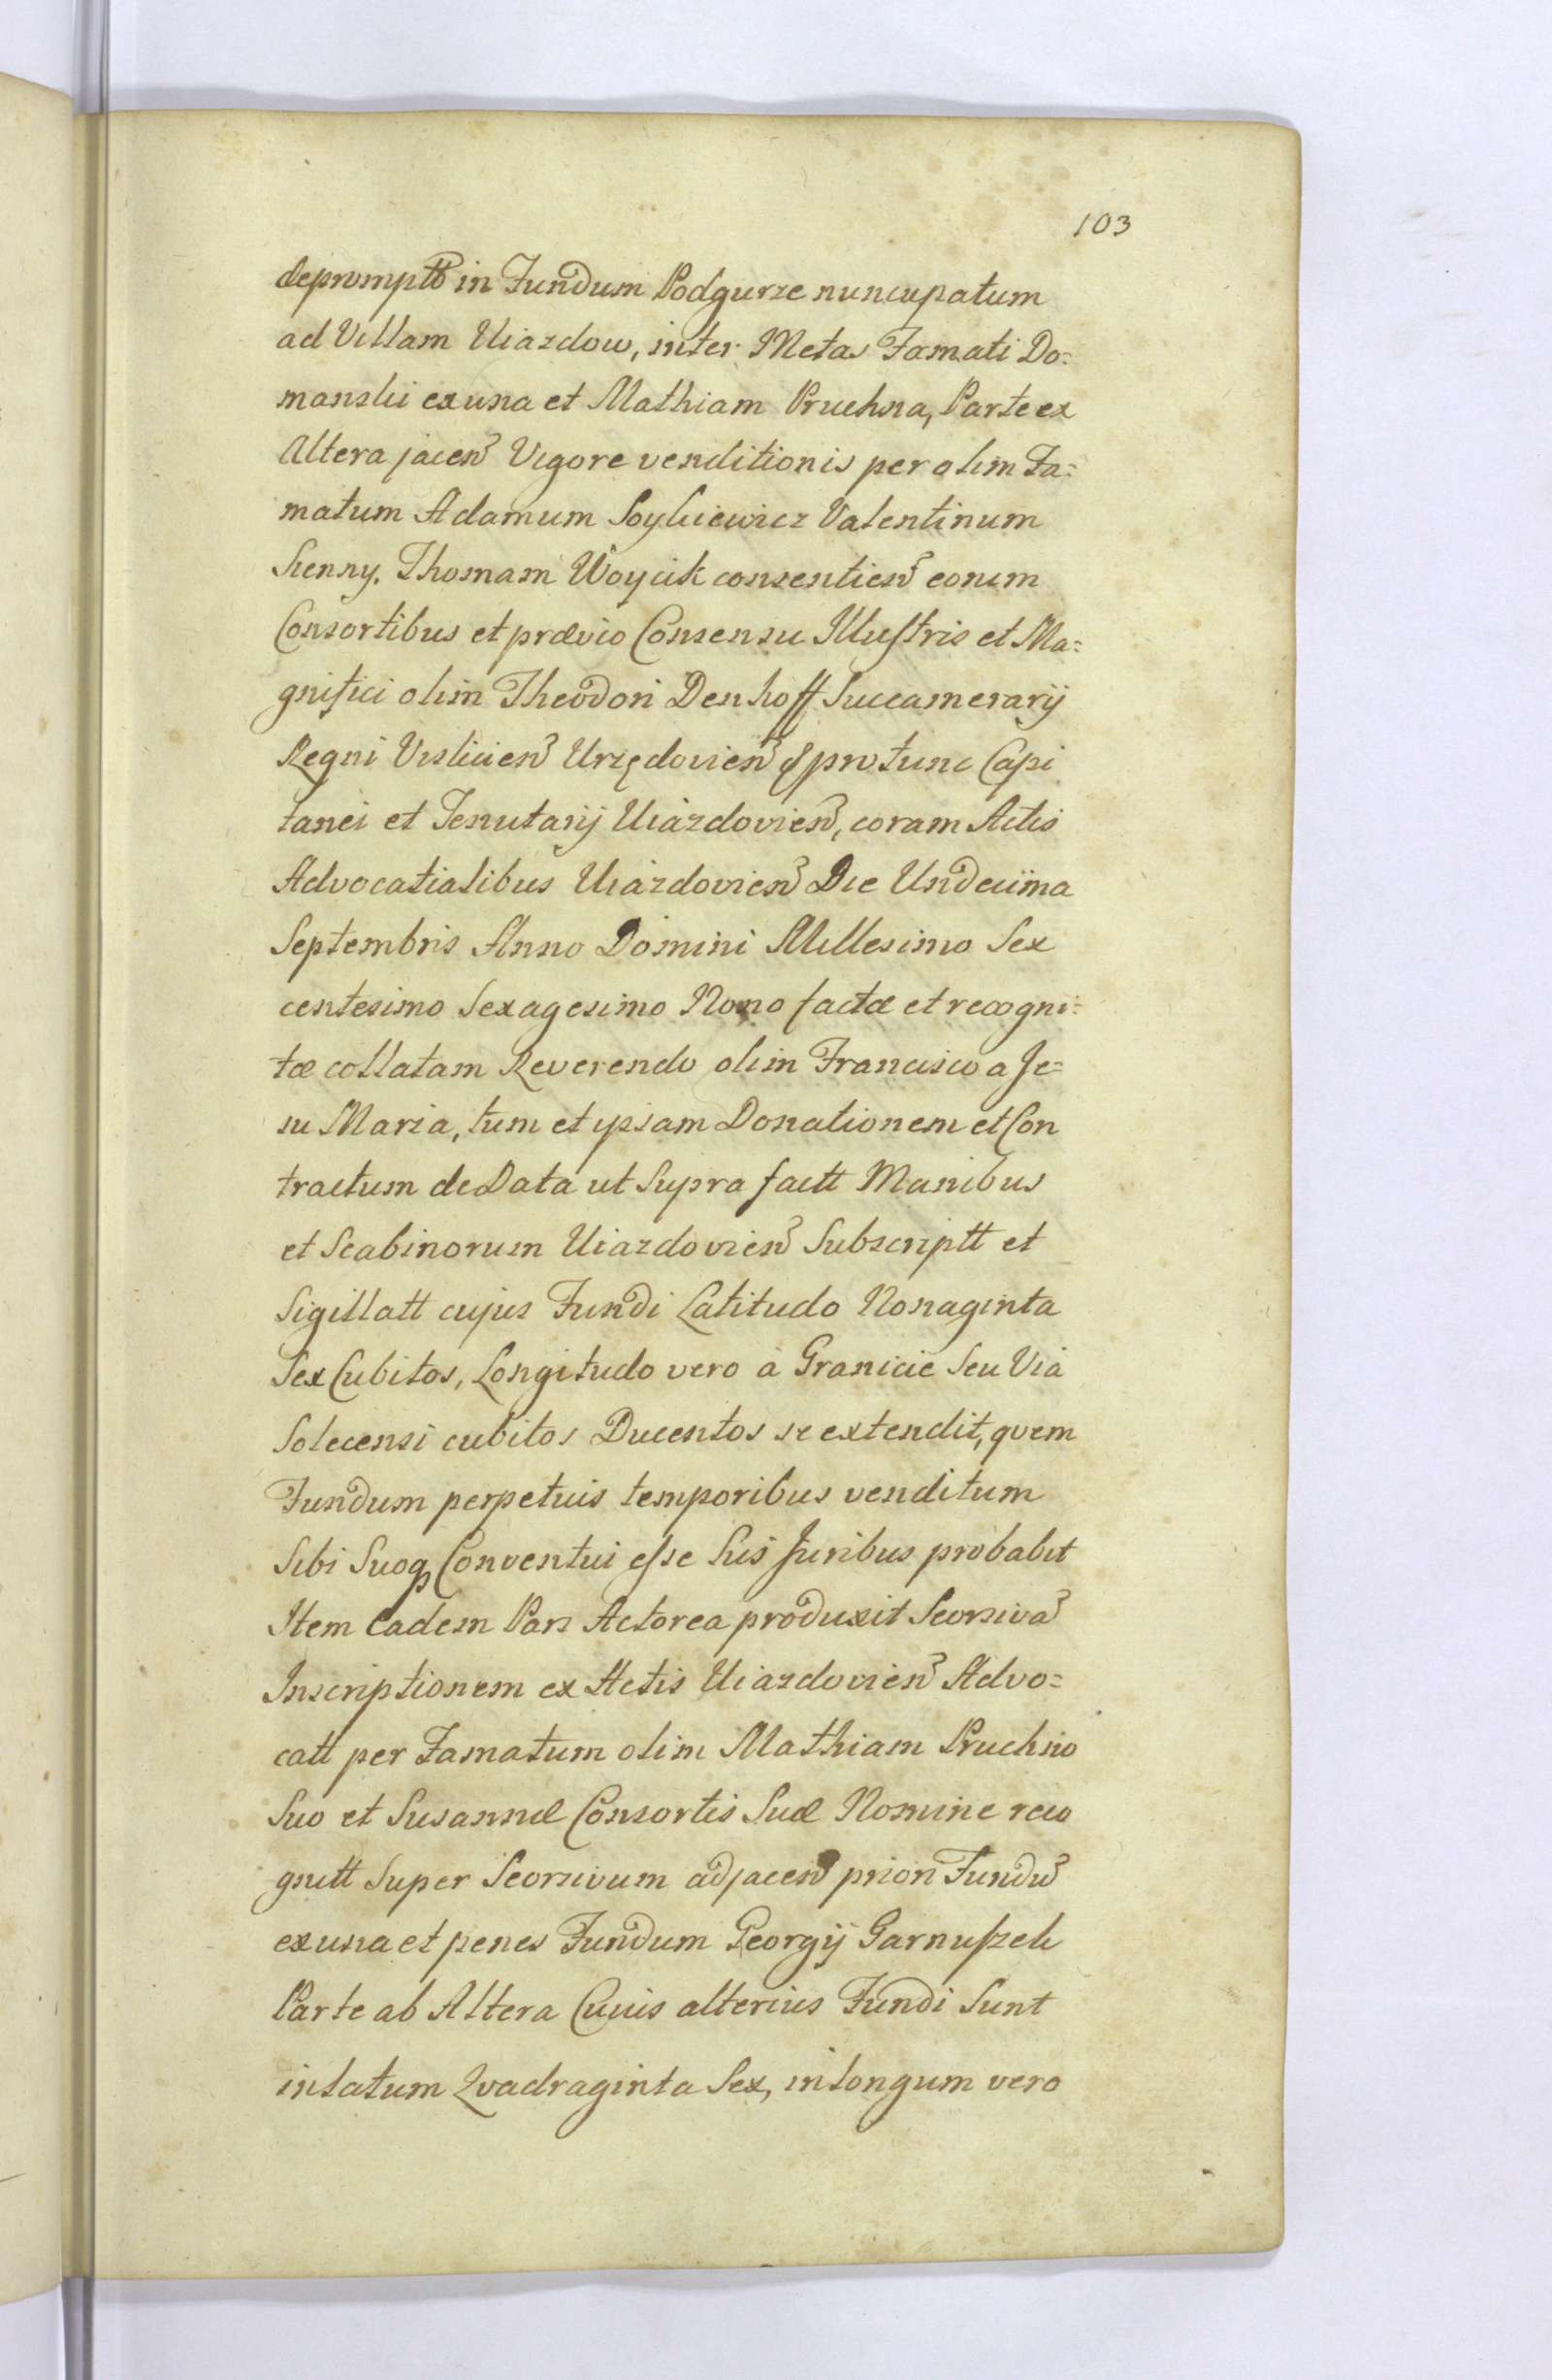 103
depromptt in Fundum Podgurze nuncupatum
ad Villam Uiazdow, inter Metas Famati Do=
manski ex una et Mathiam Pruchna, Parte ex
Altera jacen̄ Vigore venditionis per olim Fa=
matum Adamum Soykiewicz Valentinum
Skenny, Thomam Woycik consentien̄ eorum
Consortibus et prævio Consensu Illustris et Ma=
gnifici olim Theodori Denhoff Succamerarij
Regni Vislicien̄ Urzędovien̄ & pro tunc Capi
tanei et Tenutarij Uiazdovien̄, coram Actis
Advocatialibus Uiazdovien̄ Die Undecima
Septembris Anno Domini Millesimo Sex
centesimo Sexagesimo Nono factæ et recogni=
tæ collatam Reverendo olim Francisco a Je=
su Maria, tum et ipsam Donationem et Con
tractum de Data ut Supra factt Manibus
et Scabinorum Uiazdovien̄ Subscriptt et
Sigillatt cujus Fundi Latitudo Nonaginta
Sex Cubitos, Longitudo vero à Granicie Seu Via
Solecensi cubitos Ducentos se extendit, qvem
Fundum perpetuis temporibus venditum
Sibi Suoq Conventui esse his Juribus probabit
Item eadem Pars Actorea produxit Seorsiva̅
Inscriptionem ex Actis Uiazdovien̄ Advo=
catt per Famatum olim Mathiam Pruchno
Suo et Susannæ Consortis Suæ Nomine reco
gnitt Super Seorsivum adjacen̄ priori Fundu̅
ex una et penes Fundum Georgij Garnuszek
Parte ab Altera Cuius alterius Fundi Sunt
in latum Qvadraginta Sex, in longum vero